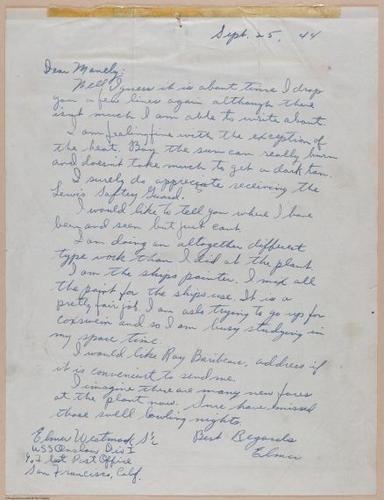 Sept. 25, 44
Dear Manely:
Well I guess it is about time I drop
you a few lines again although there
isn't much I am able to write about.
I am feeling fine with the exception of
the heat. Boy the sun can really burn
and doesn't take much to get a dark tan.
I surely do appreciate receiving the
Lewis Saftey Guard.
I would like to tell you where I have
been and seen but just cant.
I am doing an altogether different
type work than I did at the plant.
I am the ships painter. I mix all
the paint for the ships use. It is a
pretty fair job. I am also trying to go up for
coxswein and so I am busy studying in
my spare time.
I would like Ray Baribeau, address if
it is convenient to send me.
I imagine there are many new faces
at the plant now. Sure have missed
those swell bowling nights.
Best Regards
Elmer
Elmer Westmark S 1/c
USS Onslow Div I
c/o Fleet Post Office
San Francisco, Calif.